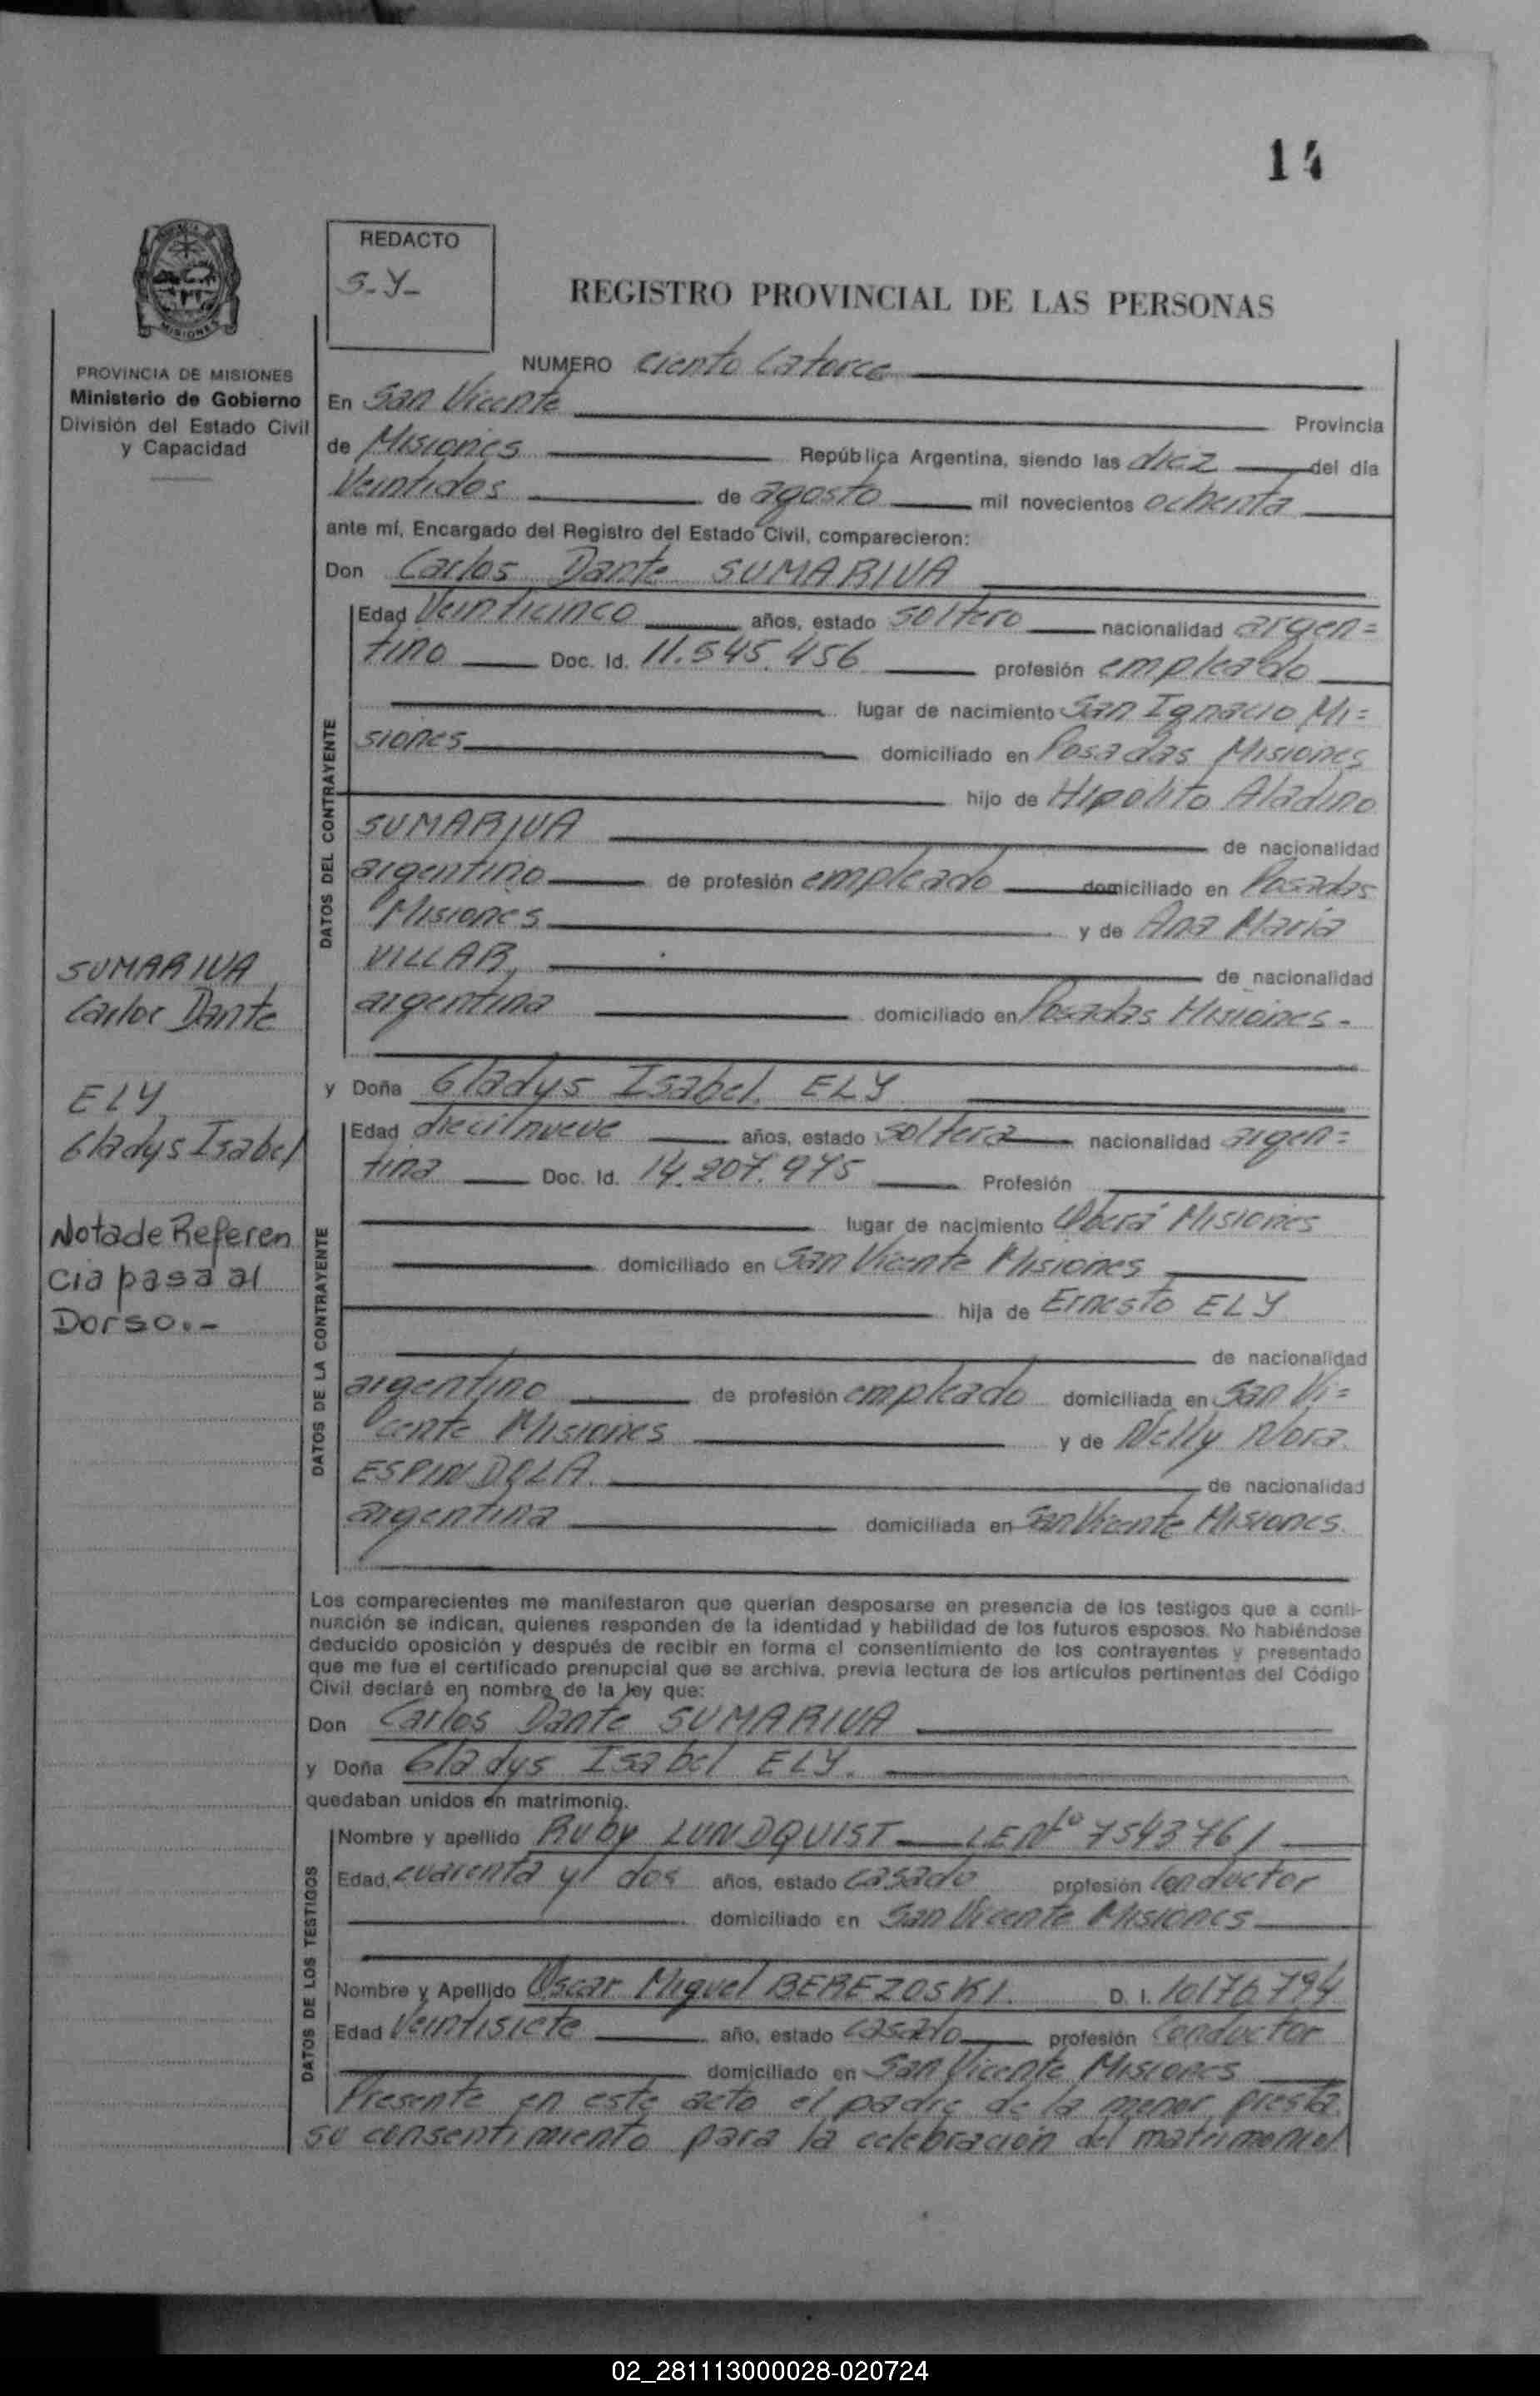 14
REDACTO
S-Y-
REGISTRO PROVINCIAL DE LAS PERSONAS
MISIONES
PROVINCIA DE MISIONES
Ministerio de Gobierno
División del Estado Civil
y Capacidad
NUMERO ciento catorce
En San Vicente Provincia
de Misiones República Argentina, siendo las diez del día
Veintidos de agosto mil novecientos ochenta
ante mí, Encargado del Registro del Estado Civil, comparecieron:
Don Carlos Dante SUMARIVA
DATOS DEL CONTRAYENTE
Edad Veinticinco años, estado soltero nacionalidad argen=
tino Doc. Id. 11.545.456 profesión empleado
lugar de nacimiento San Ignacio Mi=
siones domiciliado en Posadas Misiones
hijo de Hipolito Aladino
SUMARIVA de nacionalidad
argentino de profesión empleado domiciliado en Posadas
Misiones y de Ana María
VILLAR, de nacionalidad
argentina domiciliado en Posadas Misiones-
SUMARIVA
Carlos Dante
ELY
Gladys Isabel
Nota de Referen
cia pasa al
Dorso.-
y Doña Gladys Isabel ELY
DATOS DE LA CONTRAYENTE
Edad diecinueve años, estado soltera nacionalidad argen=
tina Doc. Id. 14.207.975 Profesión
lugar de nacimiento Oberá Misiones
domiciliado en San Vicente Misiones
hija de Ernesto ELY
de nacionalidad
argentino de profesión empleado domiciliada en San Vi=
cente Misiones y de Nelly Nora
ESPINDOLA de nacionalidad
argentina domiciliada en San Vicente Misiones
Los comparecientes me manifestaron que querían desposarse en presencia de los testigos que a conti-
nuación se indican, quienes responden de la identidad y habilidad de los futuros esposos. No habiéndose
deducido oposición y después de recibir en forma el consentimiento de los contrayentes y presentado
que me fue el certificado prenupcial que se archiva, previa lectura de los artículos pertinentes del Código
Civil declaré en nombre de la ley que:
Don Carlos Dante SUMARIVA
y Doña Gladys Isabel ELY.
quedaban unidos en matrimonio.
DATOS DE LOS TESTIGOS
Nombre y apellido Ruby LUNDQUIST LE Nº 7543761
Edad cuarenta y dos años, estado casado profesión Conductor
domiciliado en San Vicente Misiones
Nombre y Apellido Oscar Miguel BEREZOSKI D. I. 10176794
Edad Veintisiete año, estado casado profesión Conductor
domiciliado en San Vicente Misiones
Presente en este acto el padre de la menor presta
su consentimiento para la celebración del matrimonio
02_281113000028-020724